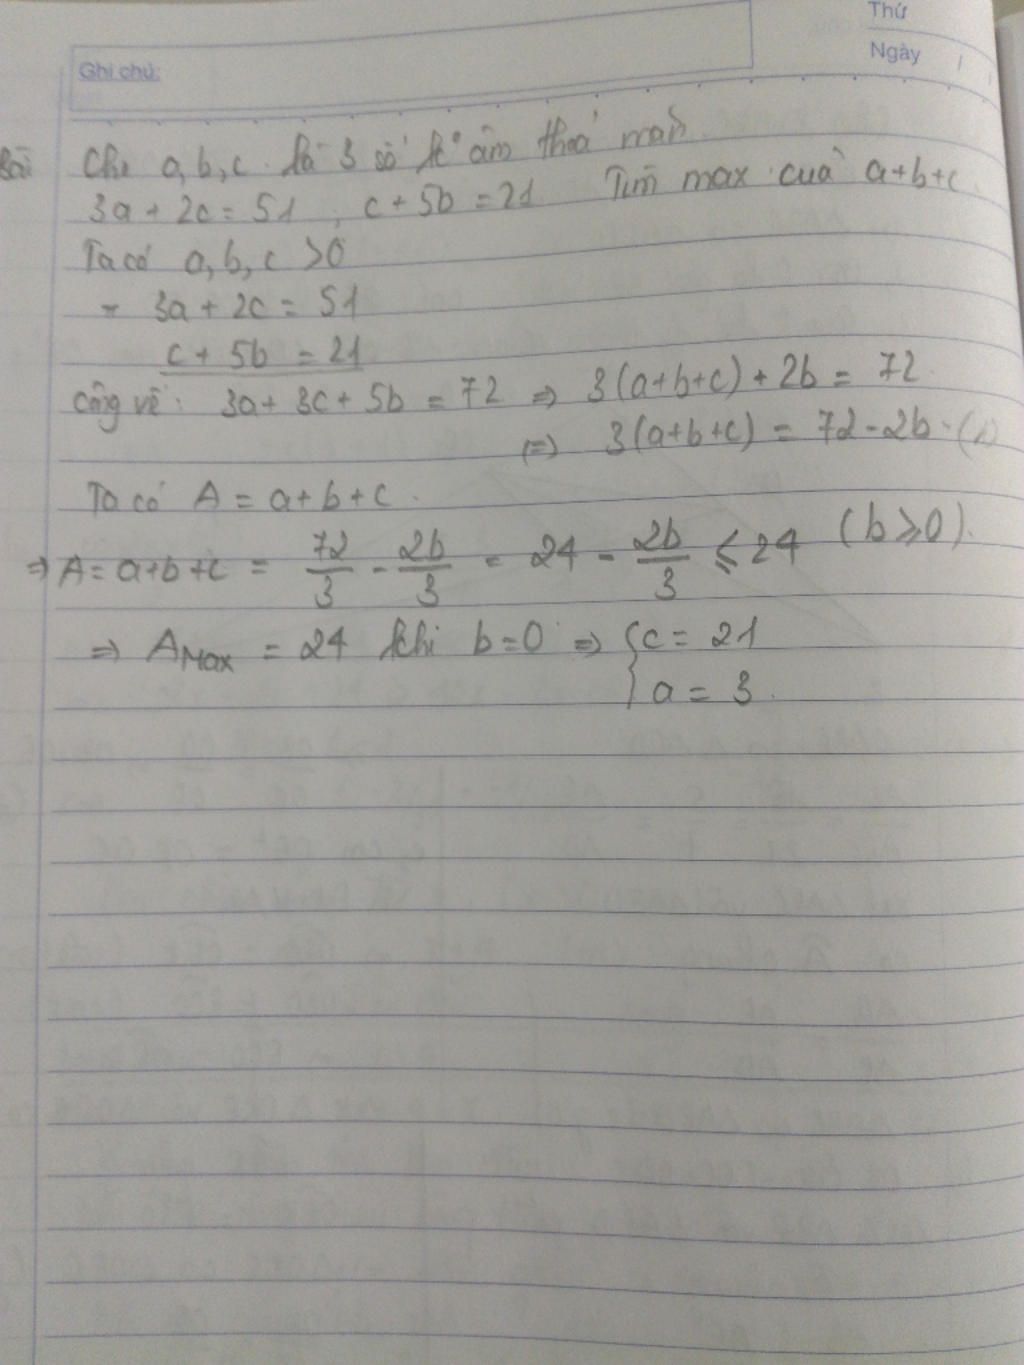 Thứ
Ngày
Ghi chú:
Bài Cho a, b, c là 3 số k° âm thoả mãn
3a + 2c = 51 , c + 5b = 21 Tìm max của a+b+c
Ta có a, b, c >0
- 3a + 2c = 51
c + 5b = 21
Cộng vế: 3a + 3c + 5b = 72 => 3(a+b+c) + 2b = 72
(=) 3(a+b+c) = 72 - 2b
Ta có A = a+b+c.
=> A = a+b+c = 72/3 - 2b/3 = 24 - 2b/3 ⩽ 24 (b ⩾ 0).
=> A Max = 24 khi b=0 => { c = 21
a = 3.